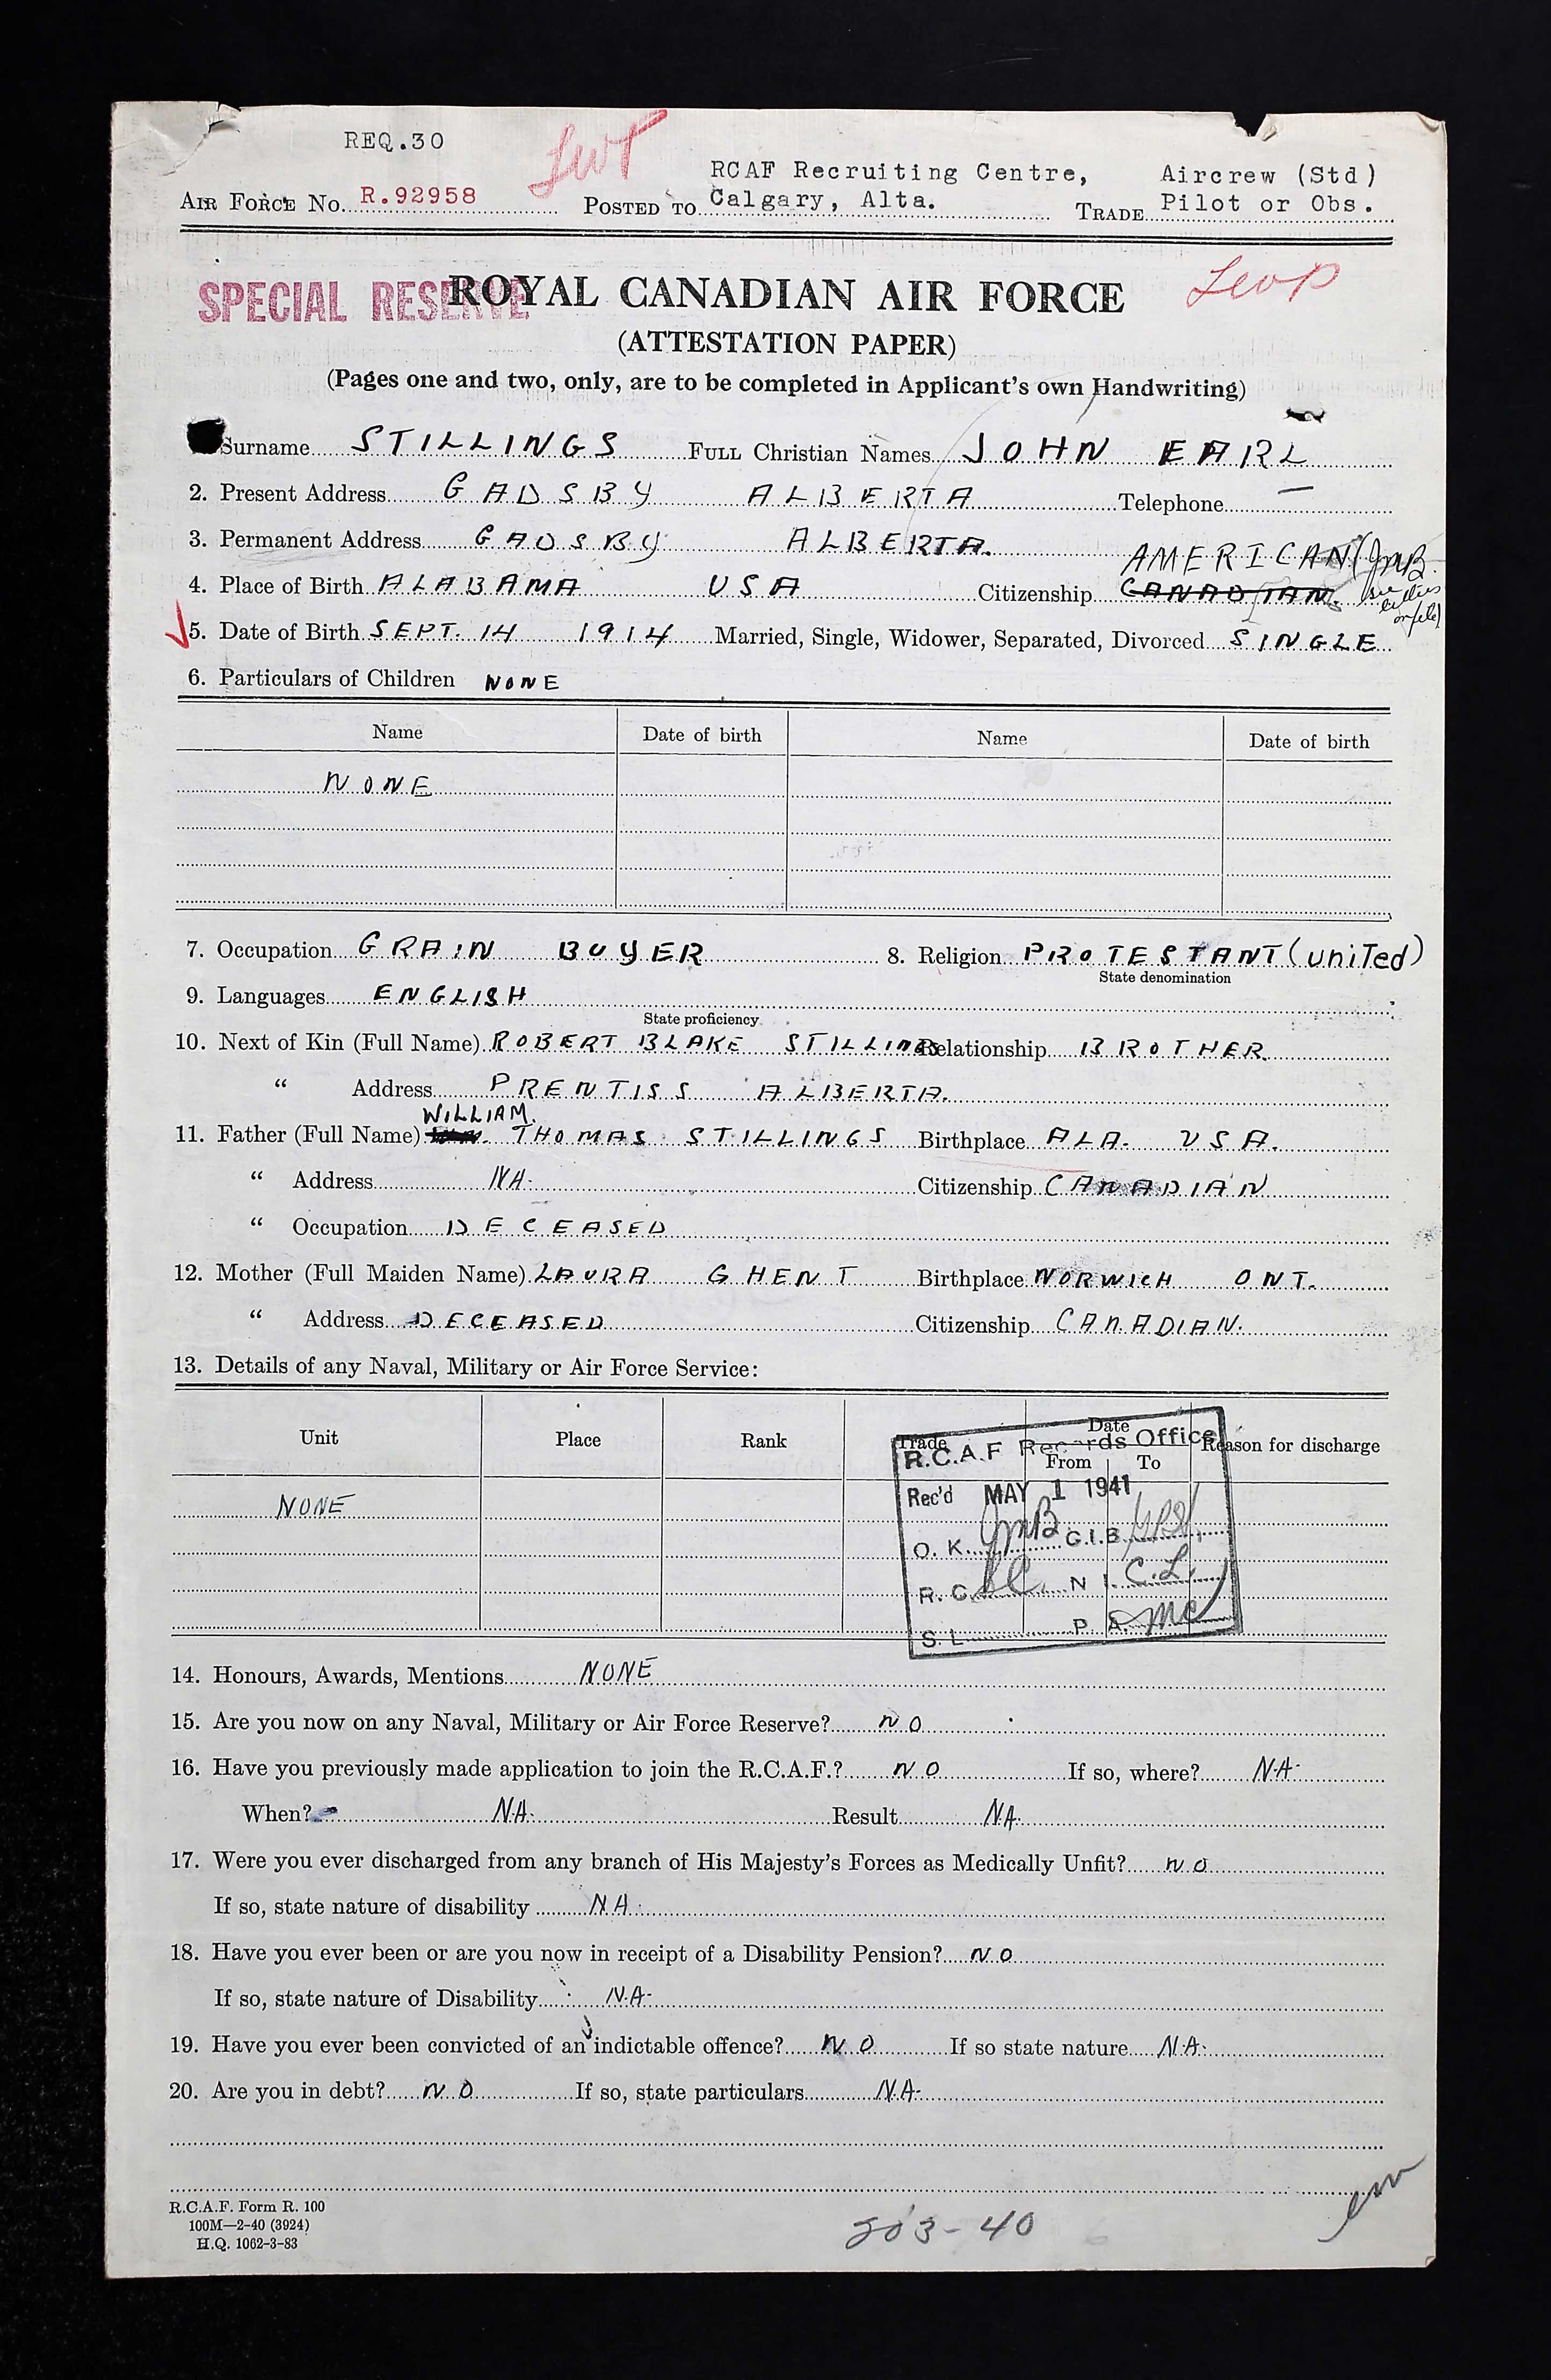 REQ.30
AIR FORCE NO. R.92958 POSTED TO RCAF Recruiting Centre, Calgary, Alta. TRADE Aircrew (Std) Pilot or Obs.
SPECIAL RESERVE
ROYAL CANADIAN AIR FORCE
(ATTESTATION PAPER)
(Pages one and two, only, are to be completed in Applicant's own Handwriting)
Surname STILLINGS FULL Christian Names JOHN EARL
2. Present Address GADSBY ALBERTA Telephone —
3. Permanent Address GADSBY ALBERTA.
AMERICAN (JMB.
4. Place of Birth ALABAMA USA Citizenship CANADIAN. see letters on file)
5. Date of Birth SEPT. 14 1914 Married, Single, Widower, Separated, Divorced SINGLE
6. Particulars of Children NONE
Name Date of birth Name Date of birth
NONE
7. Occupation GRAIN BUYER 8. Religion PROTESTANT (UNITED)
State denomination
9. Languages ENGLISH
State proficiency
10. Next of Kin (Full Name) ROBERT BLAKE STILLINGS Relationship BROTHER
" Address PRENTISS ALBERTA.
WILLIAM.
11. Father (Full Name) THOMAS STILLINGS Birthplace ALA. USA.
" Address NA. Citizenship CANADIAN
" Occupation DECEASED
12. Mother (Full Maiden Name) LAURA GHENT Birthplace NORWICH ONT.
" Address DECEASED Citizenship CANADIAN.
13. Details of any Naval, Military or Air Force Service:
Unit Place Rank Trade Date From To Reason for discharge
NONE
R.C.A.F Records Office
Rec'd MAY 1 1941
O. K. JMB C.I.B.
R. C. N I. C.L.
S. L. P. A.
14. Honours, Awards, Mentions NONE
15. Are you now on any Naval, Military or Air Force Reserve? NO
16. Have you previously made application to join the R.C.A.F.? NO If so, where? NA.
When? NA. Result NA.
17. Were you ever discharged from any branch of His Majesty's Forces as Medically Unfit? NO
If so, state nature of disability NA.
18. Have you ever been or are you now in receipt of a Disability Pension? NO
If so, state nature of Disability NA.
19. Have you ever been convicted of an indictable offence? NO If so state nature NA.
20. Are you in debt? NO If so, state particulars NA.
R.C.A.F. Form R. 100
100M—2-40 (3924)
H.Q. 1062-3-83
203-40